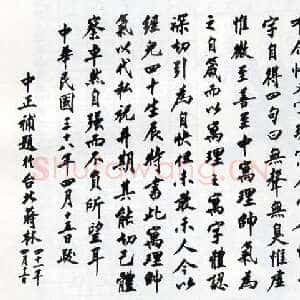 字自得四句曰無聲無臭惟虛
惟微至善至中寓理帥氣為
之自箴而以寓理之寓字體認
深切引為自快但未敢示人今以
經兒四十生辰特書此寓理帥
氣以代私祝并期其能切己體
察卓然自強而不負所望耳
中華民國三十八年四月十五日題
中正補題於台北蔣林
Shufawang.CN